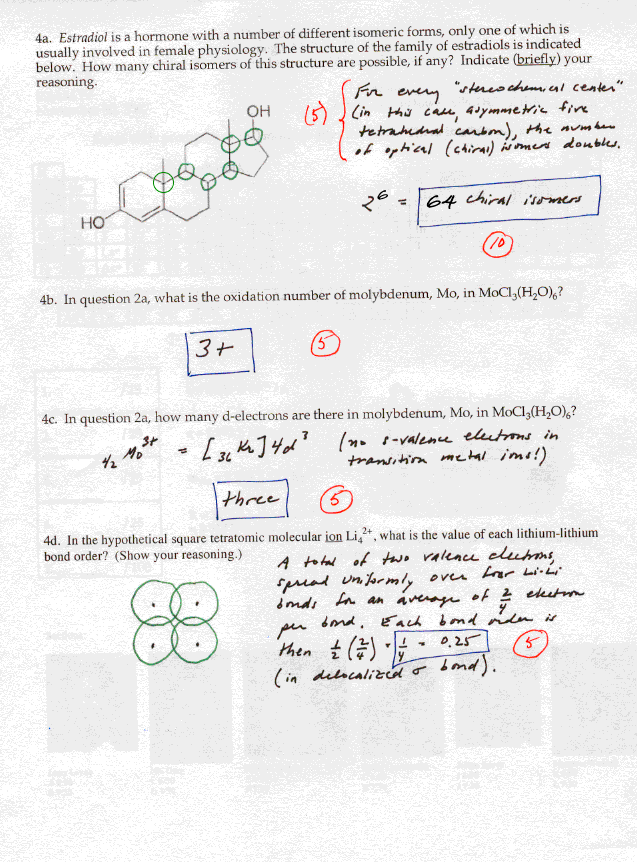 4a. Estradiol is a hormone with a number of different isomeric forms, only one of which is
usually involved in female physiology. The structure of the family of estradiols is indicated
below. How many chiral isomers of this structure are possible, if any? Indicate (briefly) your
reasoning.
For every "stereochemical center"
(5) (in this case, asymmetric five
tetrahedral carbon), the number
of optical (chiral) isomers doubles.
OH
HO
2^6 = 64 chiral isomers
10
4b. In question 2a, what is the oxidation number of molybdenum, Mo, in MoCl3(H2O)6?
3+
5
4c. In question 2a, how many d-electrons are there in molybdenum, Mo, in MoCl3(H2O)6?
42 Mo 3+ = [36 Kr] 4d3 (no s-valence electrons in
transition metal ions!)
three
5
4d. In the hypothetical square tetratomic molecular ion Li4 2+, what is the value of each lithium-lithium
bond order? (Show your reasoning.)
A total of two valence electrons,
spread uniformly over four Li-Li
bonds for an average of 2/4 electron
per bond. Each bond order is
then 1/2 (2/4) = 1/4 = 0.25
5
(in delocalized σ bond).